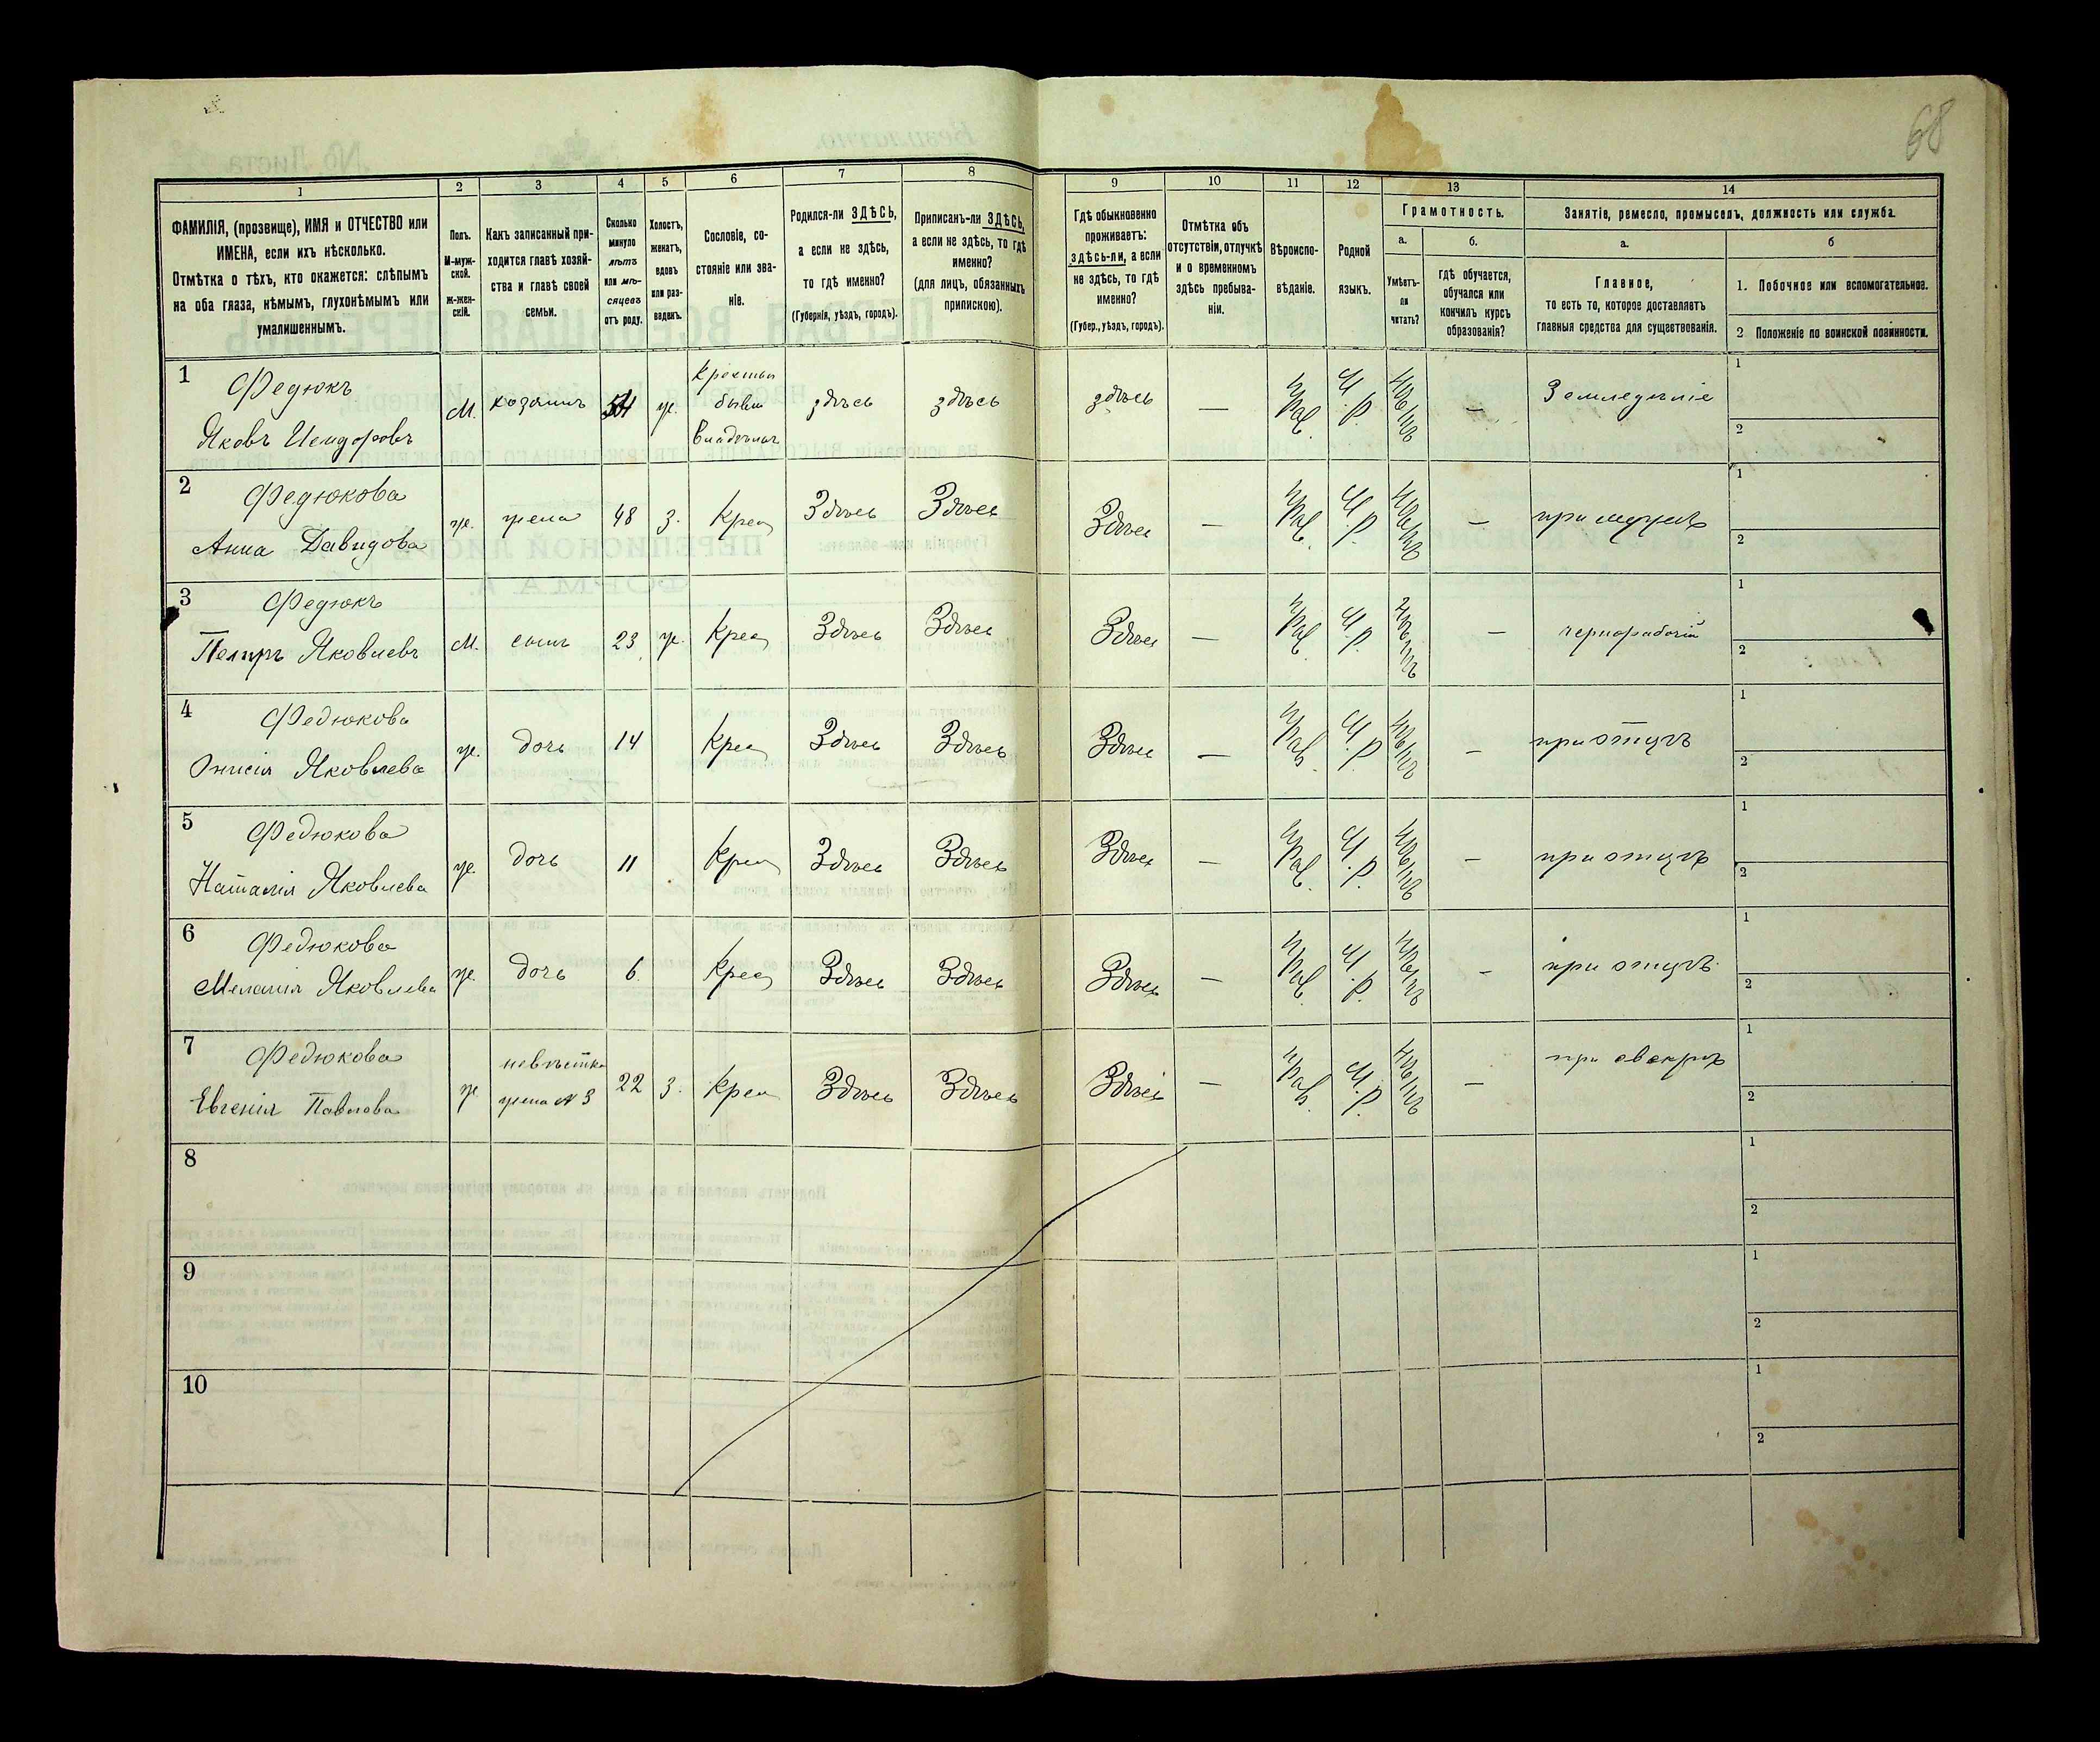 68
1
2
3
4
5
6
7
8
9
10
11
12
13
14
ФАМИЛІЯ, (прозвище), ИМЯ и ОТЧЕСТВО или
ИМЕНА, если ихъ нѣсколько.
Отмѣтка о тѣхъ, кто окажется: слѣпымъ
на оба глаза, нѣмымъ, глухонѣмымъ или
умалишеннымъ.
Полъ.
М-муж-
ской.
ж-жен-
скій.
Какъ записанный при-
ходится главѣ хозяй-
ства и главѣ своей
семьи.
Сколько
минуло
лѣтъ
или мѣ-
сяцевъ
отъ роду.
Холостъ,
женатъ,
вдовъ
или раз-
веденъ.
Сословіе, со-
стояніе или зва-
ніе.
Родился-ли ЗДѢСЬ,
а если не здѣсь,
то гдѣ именно?
(Губернія, уѣздъ, городъ).
Приписанъ-ли ЗДѢСЬ,
а если не здѣсь, то гдѣ
именно?
(для лицъ, обязанныхъ
припискою).
Гдѣ обыкновенно
проживаетъ:
здѣсь-ли, а если
не здѣсь, то гдѣ
именно?
(Губер., уѣздъ, городъ).
Отмѣтка объ
отсутствіи, отлучкѣ
и о временномъ
здѣсь пребыва-
ніи.
Вѣроиспо-
вѣданіе.
Родной
языкъ.
Грамотность.
а.
б.
Умѣетъ-
ли
читать?
гдѣ обучается,
обучался или
кончилъ курсъ
образованія?
Занятіе, ремесло, промыселъ, должность или служба.
а.
б
Главное,
то есть то, которое доставляетъ
главныя средства для существованія.
1. Побочное или вспомогательное.
2 Положеніе по воинской повинности.
1
Федюкъ
Яковъ Исидоровъ
М.
хозяинъ
54
ж.
Крестьян
бывш
Владѣльч
здѣсь
здѣсь
здѣсь
—
Прав.
М.Р.
Нѣтъ
—
Земледѣліе
1
2
2
Федюкова
Анна Давидова
же.
жена
48
З.
Крес
Здѣсь
Здѣсь
Здѣсь
—
Прав.
М.Р.
Нѣтъ
—
при мужѣ
1
2
3
Федюкъ
Петръ Яковлевъ
М.
сынъ
23
ж.
Крес
Здѣсь
Здѣсь
Здѣсь
—
Прав.
М.Р.
Нѣтъ
—
чернорабочій
1
2
4
Федюкова
Онисія Яковлева
же.
дочь
14
Крес
Здѣсь
Здѣсь
Здѣсь
—
Прав.
М.Р.
Нѣтъ
—
при отцѣ
1
2
5
Федюкова
Наталія Яковлева
же.
дочь
11
Крес
Здѣсь
Здѣсь
Здѣсь
—
Прав.
М.Р.
Нѣтъ
—
при отцѣ
1
2
6
Федюкова
Меланія Яковлева
же.
дочь
6
Крес
Здѣсь
Здѣсь
Здѣсь
—
Прав.
М.Р.
Нѣтъ
—
при отцѣ
1
2
7
Федюкова
Евгенія Павлова
же
невѣстка
жена N 3
22
З.
Крес
Здѣсь
Здѣсь
Здѣсь
—
Прав.
М.Р.
Нѣтъ
—
при свекрѣ
1
2
8
1
2
9
1
2
10
1
2